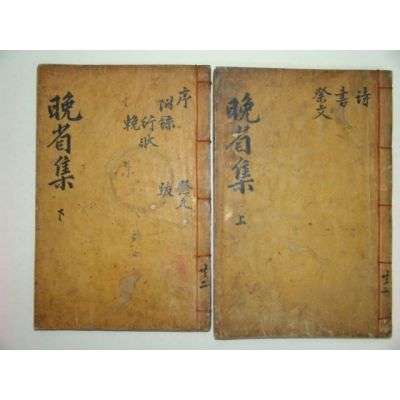 晩省集
下
序
附錄
行狀
輓
跋
晩省集
上
詩
書
祭文
共二
共二